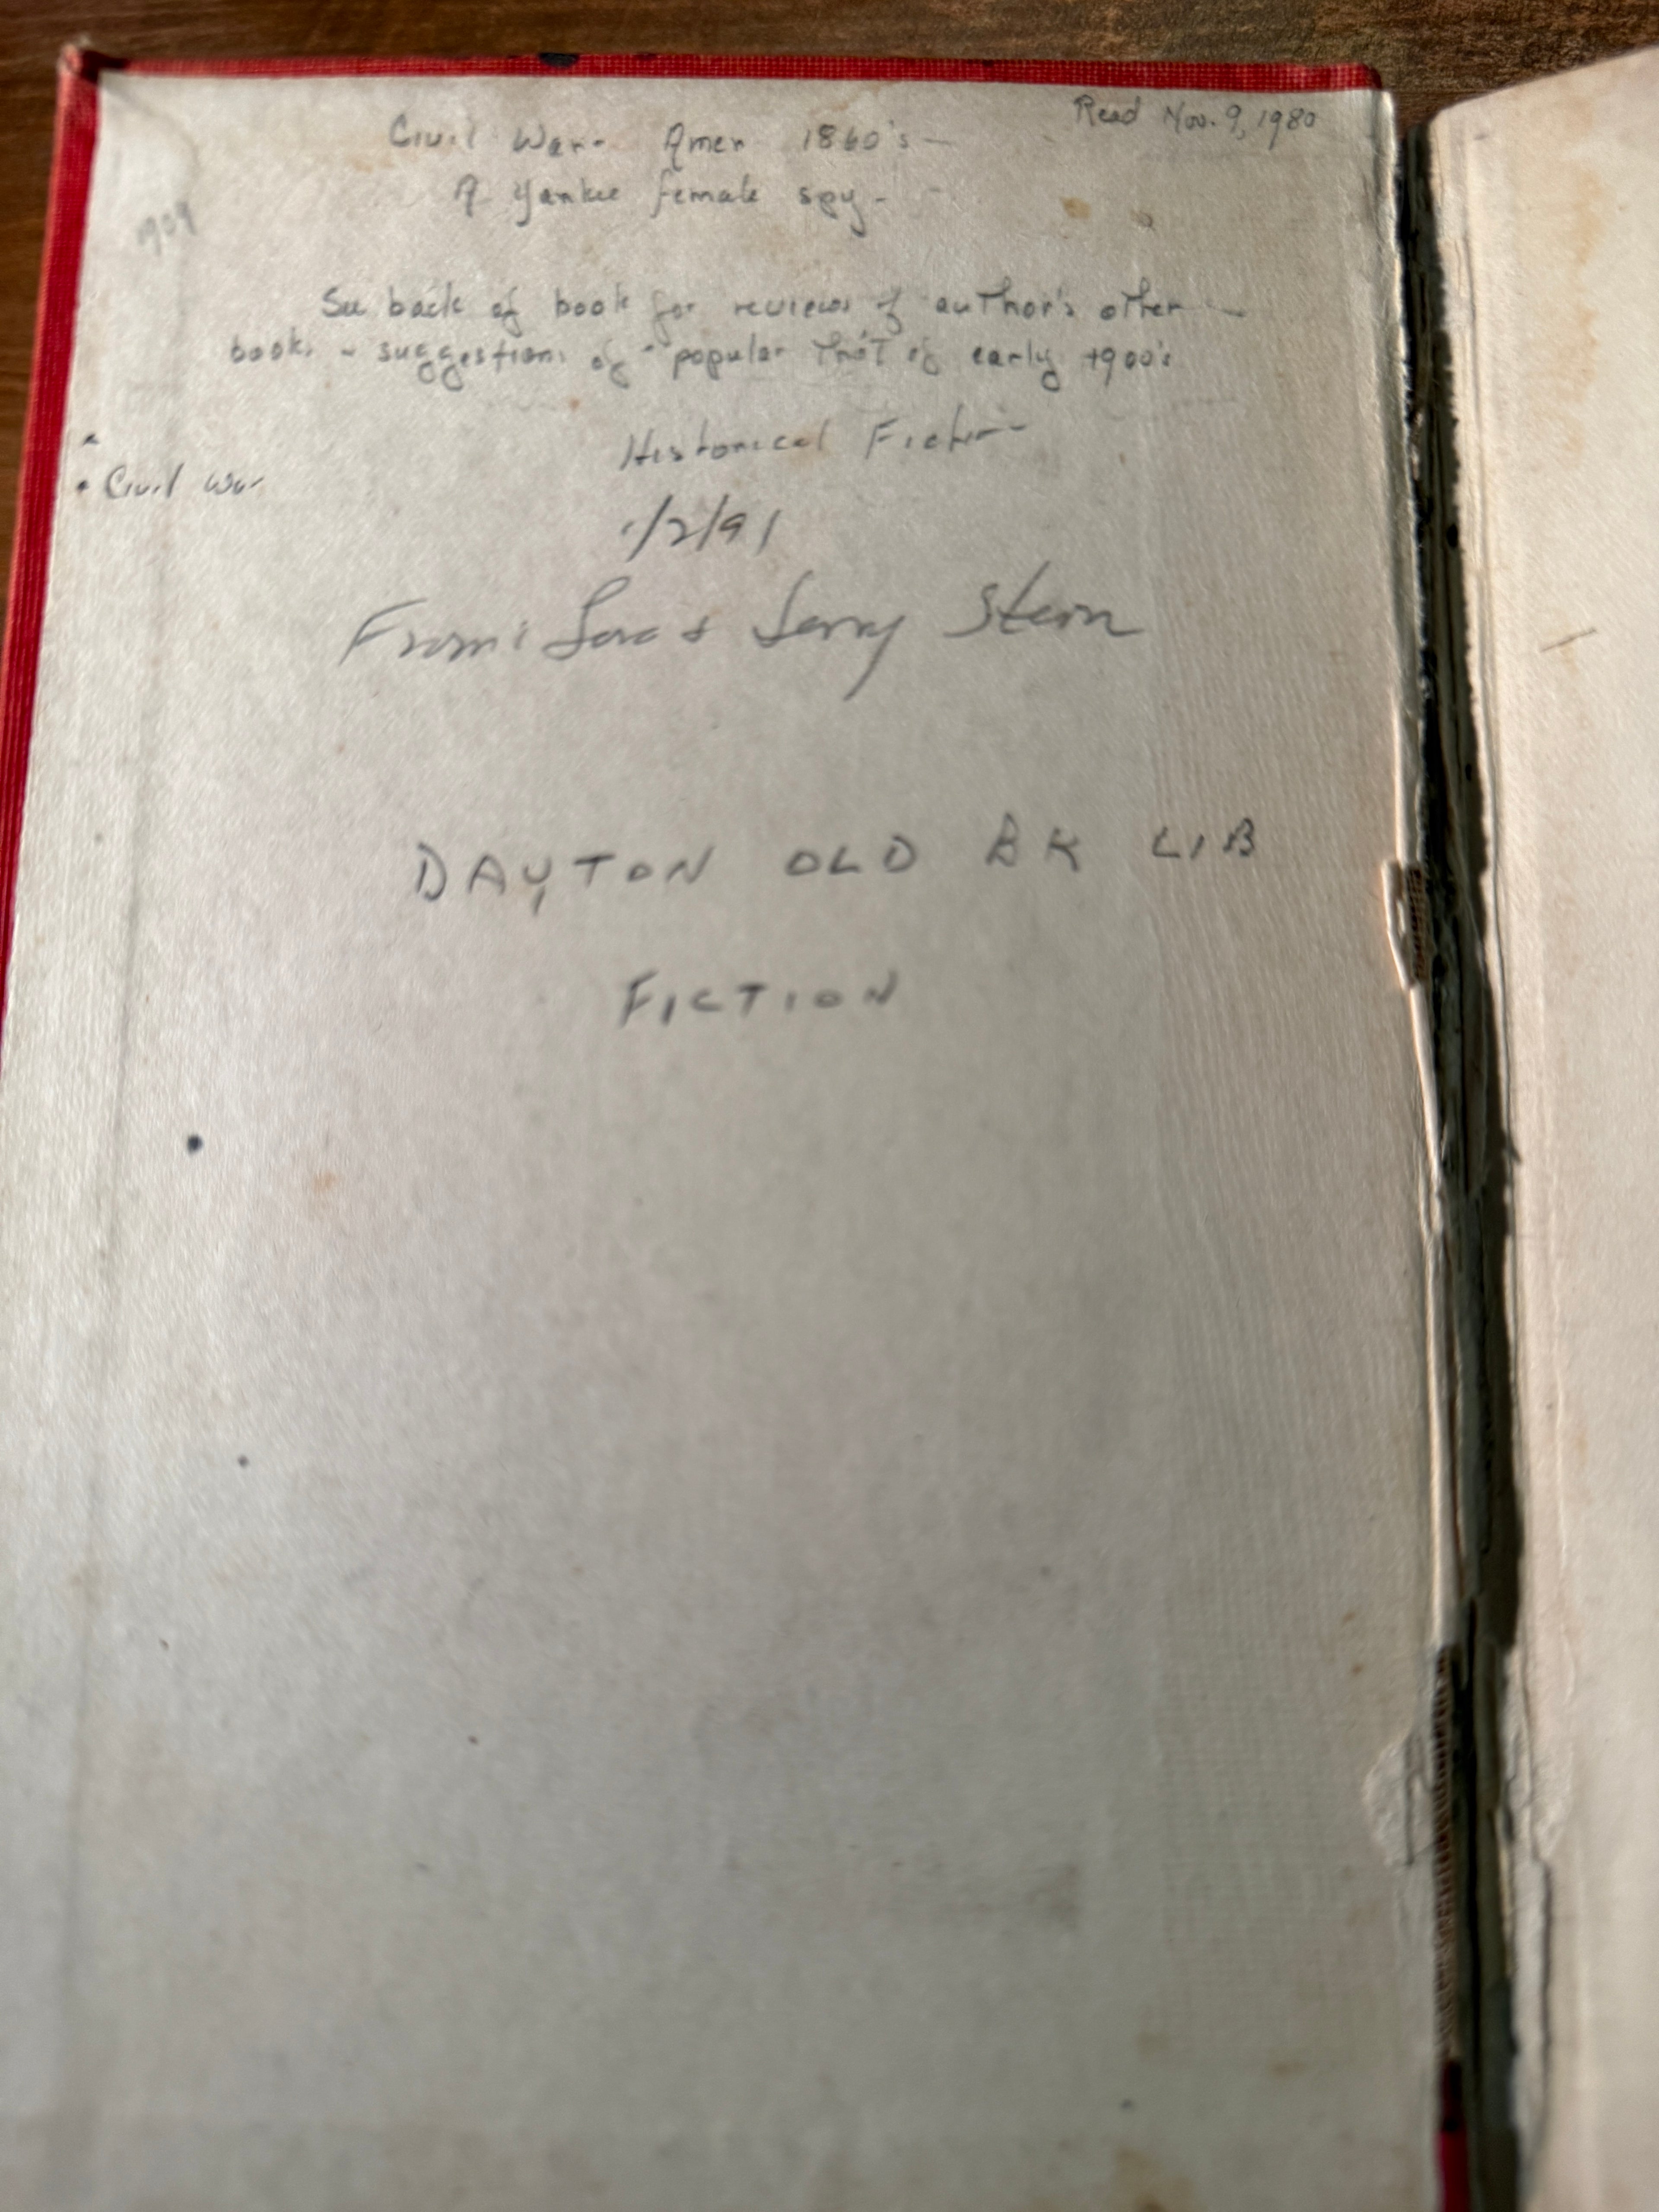 Read Nov. 9, 1980
Civil War - Amer 1860's -
A Yankee female spy -
1909
See back of book for reviews of author's other
books - suggestions of "popular" of early 1900's
Historical Fiction
• Civil War
1/2/91
From: & Stern
DAYTON OLD BK LIB
FICTION